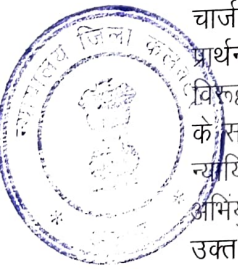 चार्ज
प्रार्थन
विरूद्ध
के स
न्यायि
अभियु
उक्त
न्यायालय जिला कल